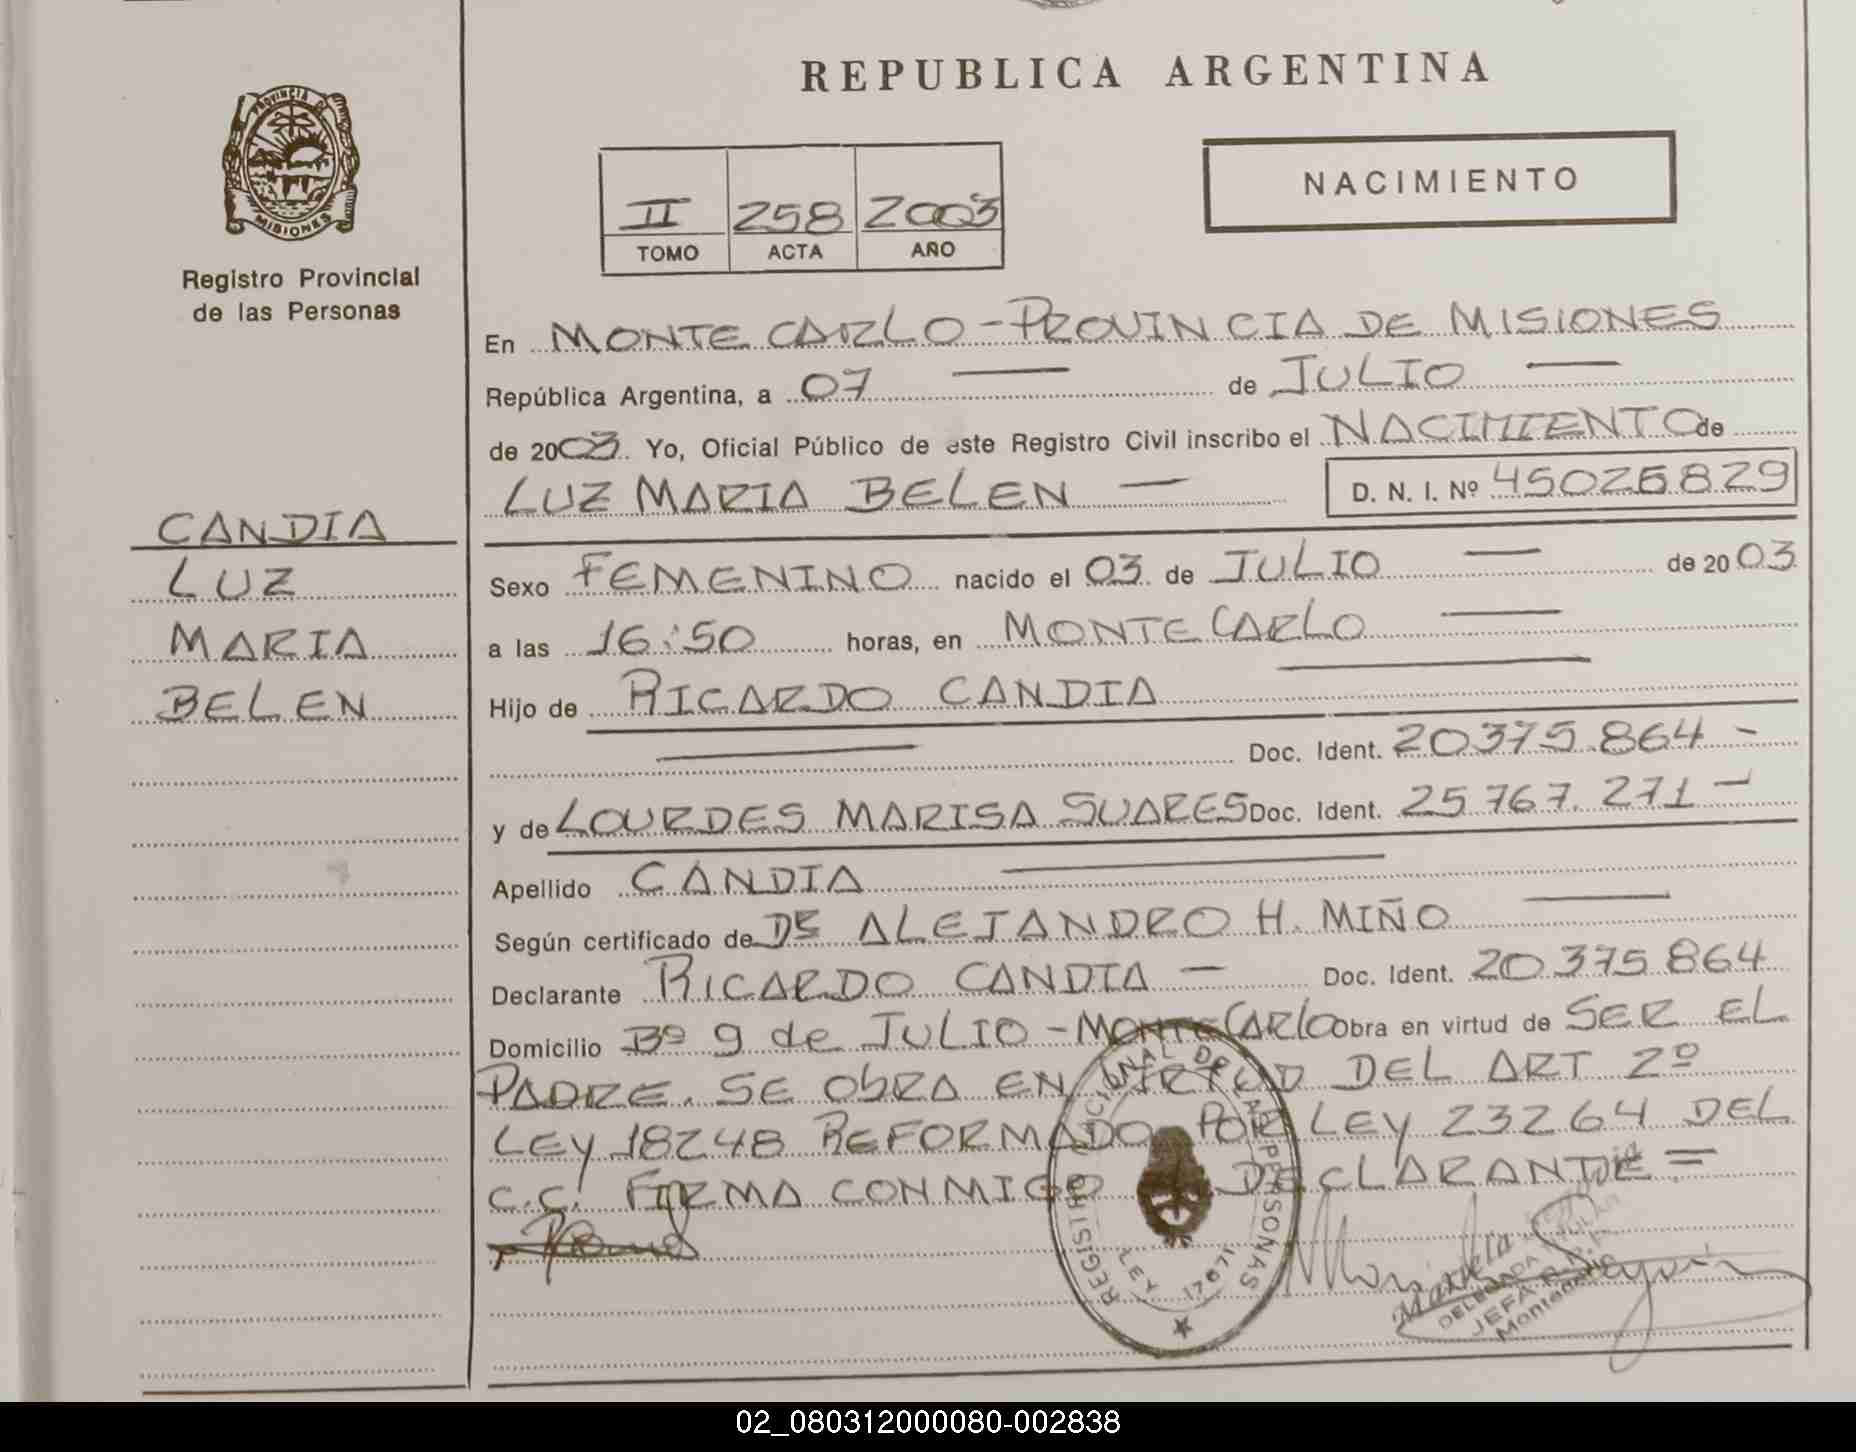 REPUBLICA ARGENTINA
PROVINCIA DE
MISIONES
Registro Provincial
de las Personas
II 258 2003
TOMO ACTA AÑO
NACIMIENTO
En MONTE CARLO - PROVINCIA DE MISIONES
República Argentina, a 07 — de JULIO —
de 2003. Yo, Oficial Público de este Registro Civil inscribo el NACIMIENTO de
LUZ MARIA BELEN — D. N. I. Nº 45025829
CANDIA
LUZ
MARIA
BELEN
Sexo FEMENINO nacido el 03 de JULIO — de 2003
a las 16:50 horas, en MONTE CARLO —
Hijo de RICARDO CANDIA —
— Doc. Ident. 20375.864 -
y de LOURDES MARISA SUARES Doc. Ident. 25767.271 -
Apellido CANDIA —
Según certificado de DR ALEJANDRO H. MIÑO —
Declarante RICARDO CANDIA — Doc. Ident. 20375864
Domicilio Bº 9 de JULIO - MONTECARLO Obra en virtud de SER EL
PADRE. SE OBRA EN VIRTUD DEL ART 2º
LEY 18248 REFORMADO POR LEY 23264 DEL
C.C. FIRMA CONMIGO DECLARANTE =
REGISTRO NACIONAL DE LAS PERSONAS
LEY 17671
DELEGADA TITULAR
02_080312000080-002838